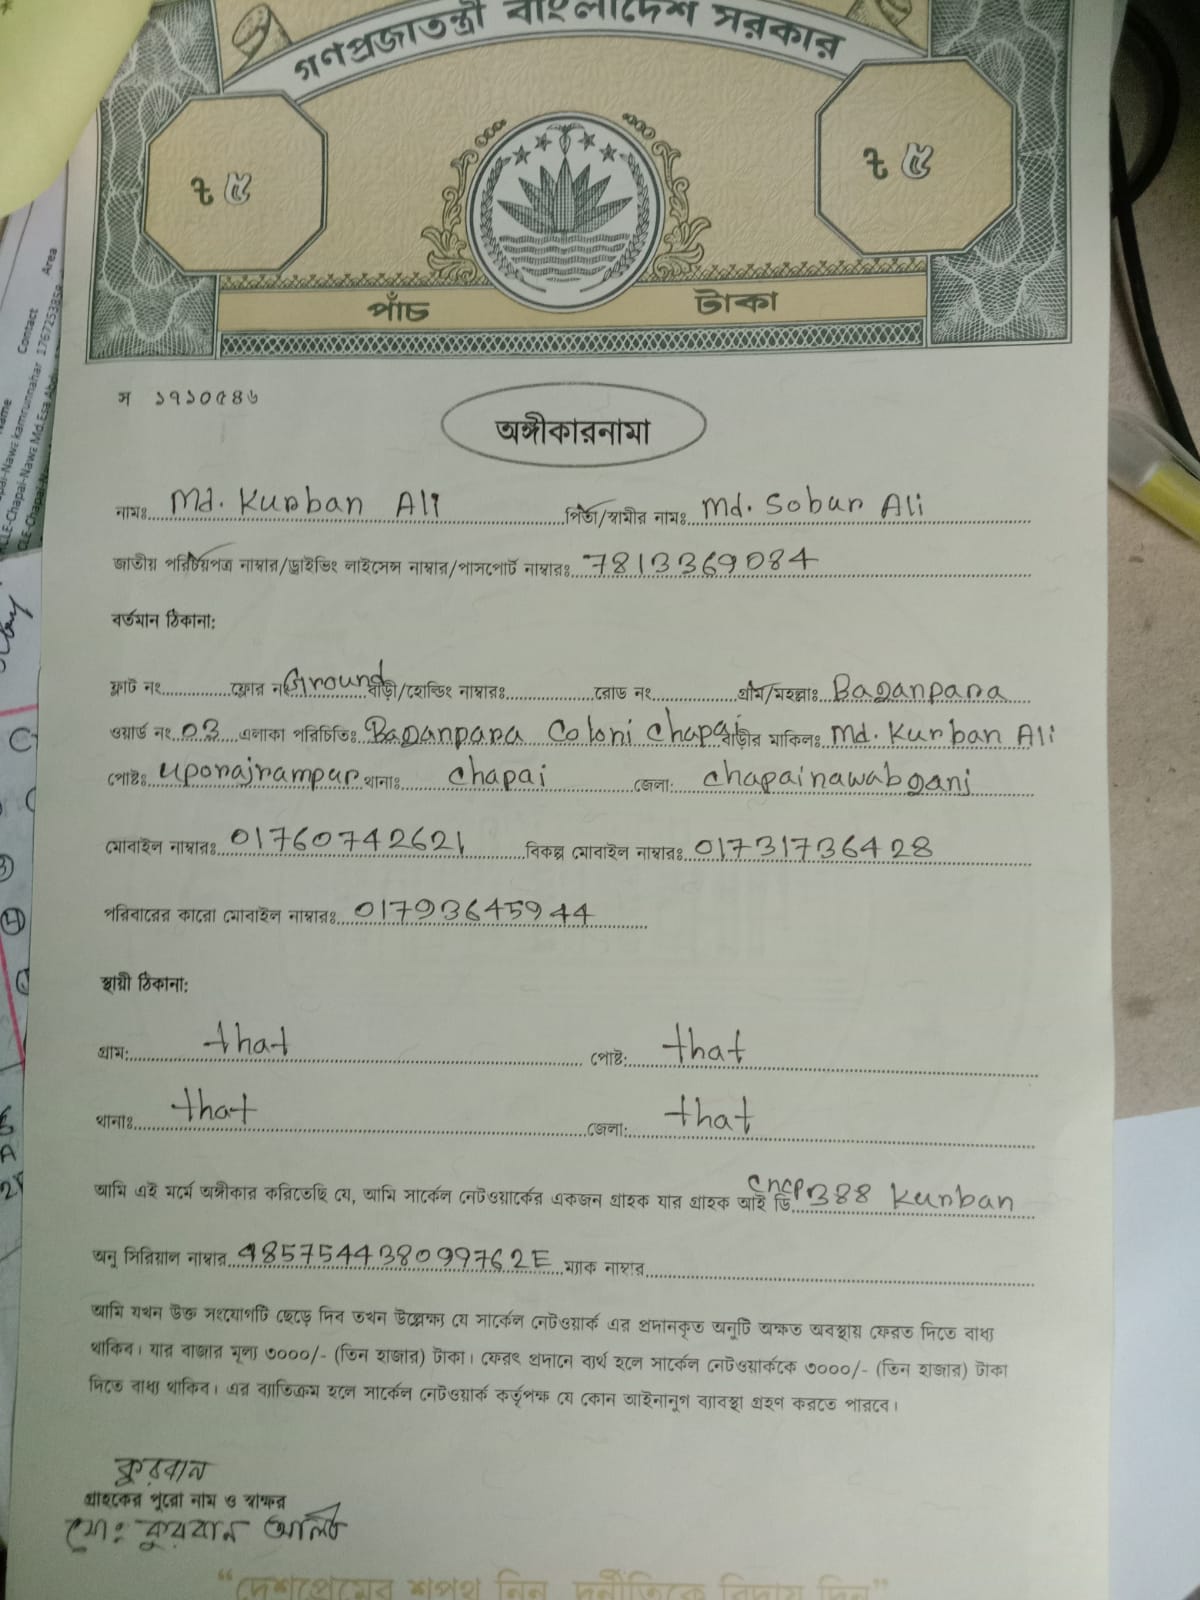 গণপ্রজাতন্ত্রী বাংলাদেশ সরকার
৳ ৫
৳ ৫
পাঁচ টাকা
স ১৭১০৫৪৬
অঙ্গীকারনামা
নামঃ Md. Kurban Ali পিতা/স্বামীর নামঃ Md. Sobur Ali
জাতীয় পরিচয়পত্র নাম্বার/ড্রাইভিং লাইসেন্স নাম্বার/পাসপোর্ট নাম্বারঃ 7813369084
বর্তমান ঠিকানা:
ফ্লাট নং ফ্লোর নং Ground বাড়ী/হোল্ডিং নাম্বারঃ রোড নং গ্রাম/মহল্লাঃ Baganpara
ওয়ার্ড নং 03 এলাকা পরিচিতিঃ Baganpara Coloni Chapai বাড়ীর মাকিলঃ Md. Kurban Ali
পোষ্টঃ Uporajrampur থানাঃ Chapai জেলা: Chapainawabganj
মোবাইল নাম্বারঃ 01760742621 বিকল্প মোবাইল নাম্বারঃ 01731736428
পরিবারের কারো মোবাইল নাম্বারঃ 01793645944
স্থায়ী ঠিকানা:
গ্রাম: that পোষ্ট: that
থানাঃ that জেলা: that
আমি এই মর্মে অঙ্গীকার করিতেছি যে, আমি সার্কেল নেটওয়ার্কের একজন গ্রাহক যার গ্রাহক আই ডি cncp388 Kurban
অনু সিরিয়াল নাম্বার 485754438099762E ম্যাক নাম্বার
আমি যখন উক্ত সংযোগটি ছেড়ে দিব তখন উল্লেক্ষ্য যে সার্কেল নেটওয়ার্ক এর প্রদানকৃত অনুটি অক্ষত অবস্থায় ফেরত দিতে বাধ্য
থাকিব। যার বাজার মূল্য ৩০০০/- (তিন হাজার) টাকা। ফেরৎ প্রদানে ব্যর্থ হলে সার্কেল নেটওয়ার্ককে ৩০০০/- (তিন হাজার) টাকা
দিতে বাধ্য থাকিব। এর ব্যাতিক্রম হলে সার্কেল নেটওয়ার্ক কর্তৃপক্ষ যে কোন আইনানুগ ব্যাবস্থা গ্রহণ করতে পারবে।
কুরবান
গ্রাহকের পুরো নাম ও স্বাক্ষর
মো: কুরবান আলি
“দেশপ্রেমের শপথ নিন, দুর্নীতিকে বিদায় দিন”